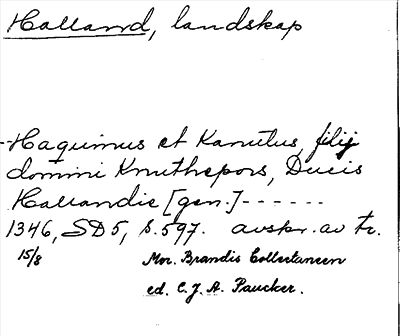 Halland, landskap
--Haquinus et Kanutus, filij
domini Knuthepors, Ducis
Hallandie [gen.] ------
1346, SD5, s.597. avskr. av tr.
15/8 Mor. Brandis Collectaneen
ed. C. J. A. Paucker.